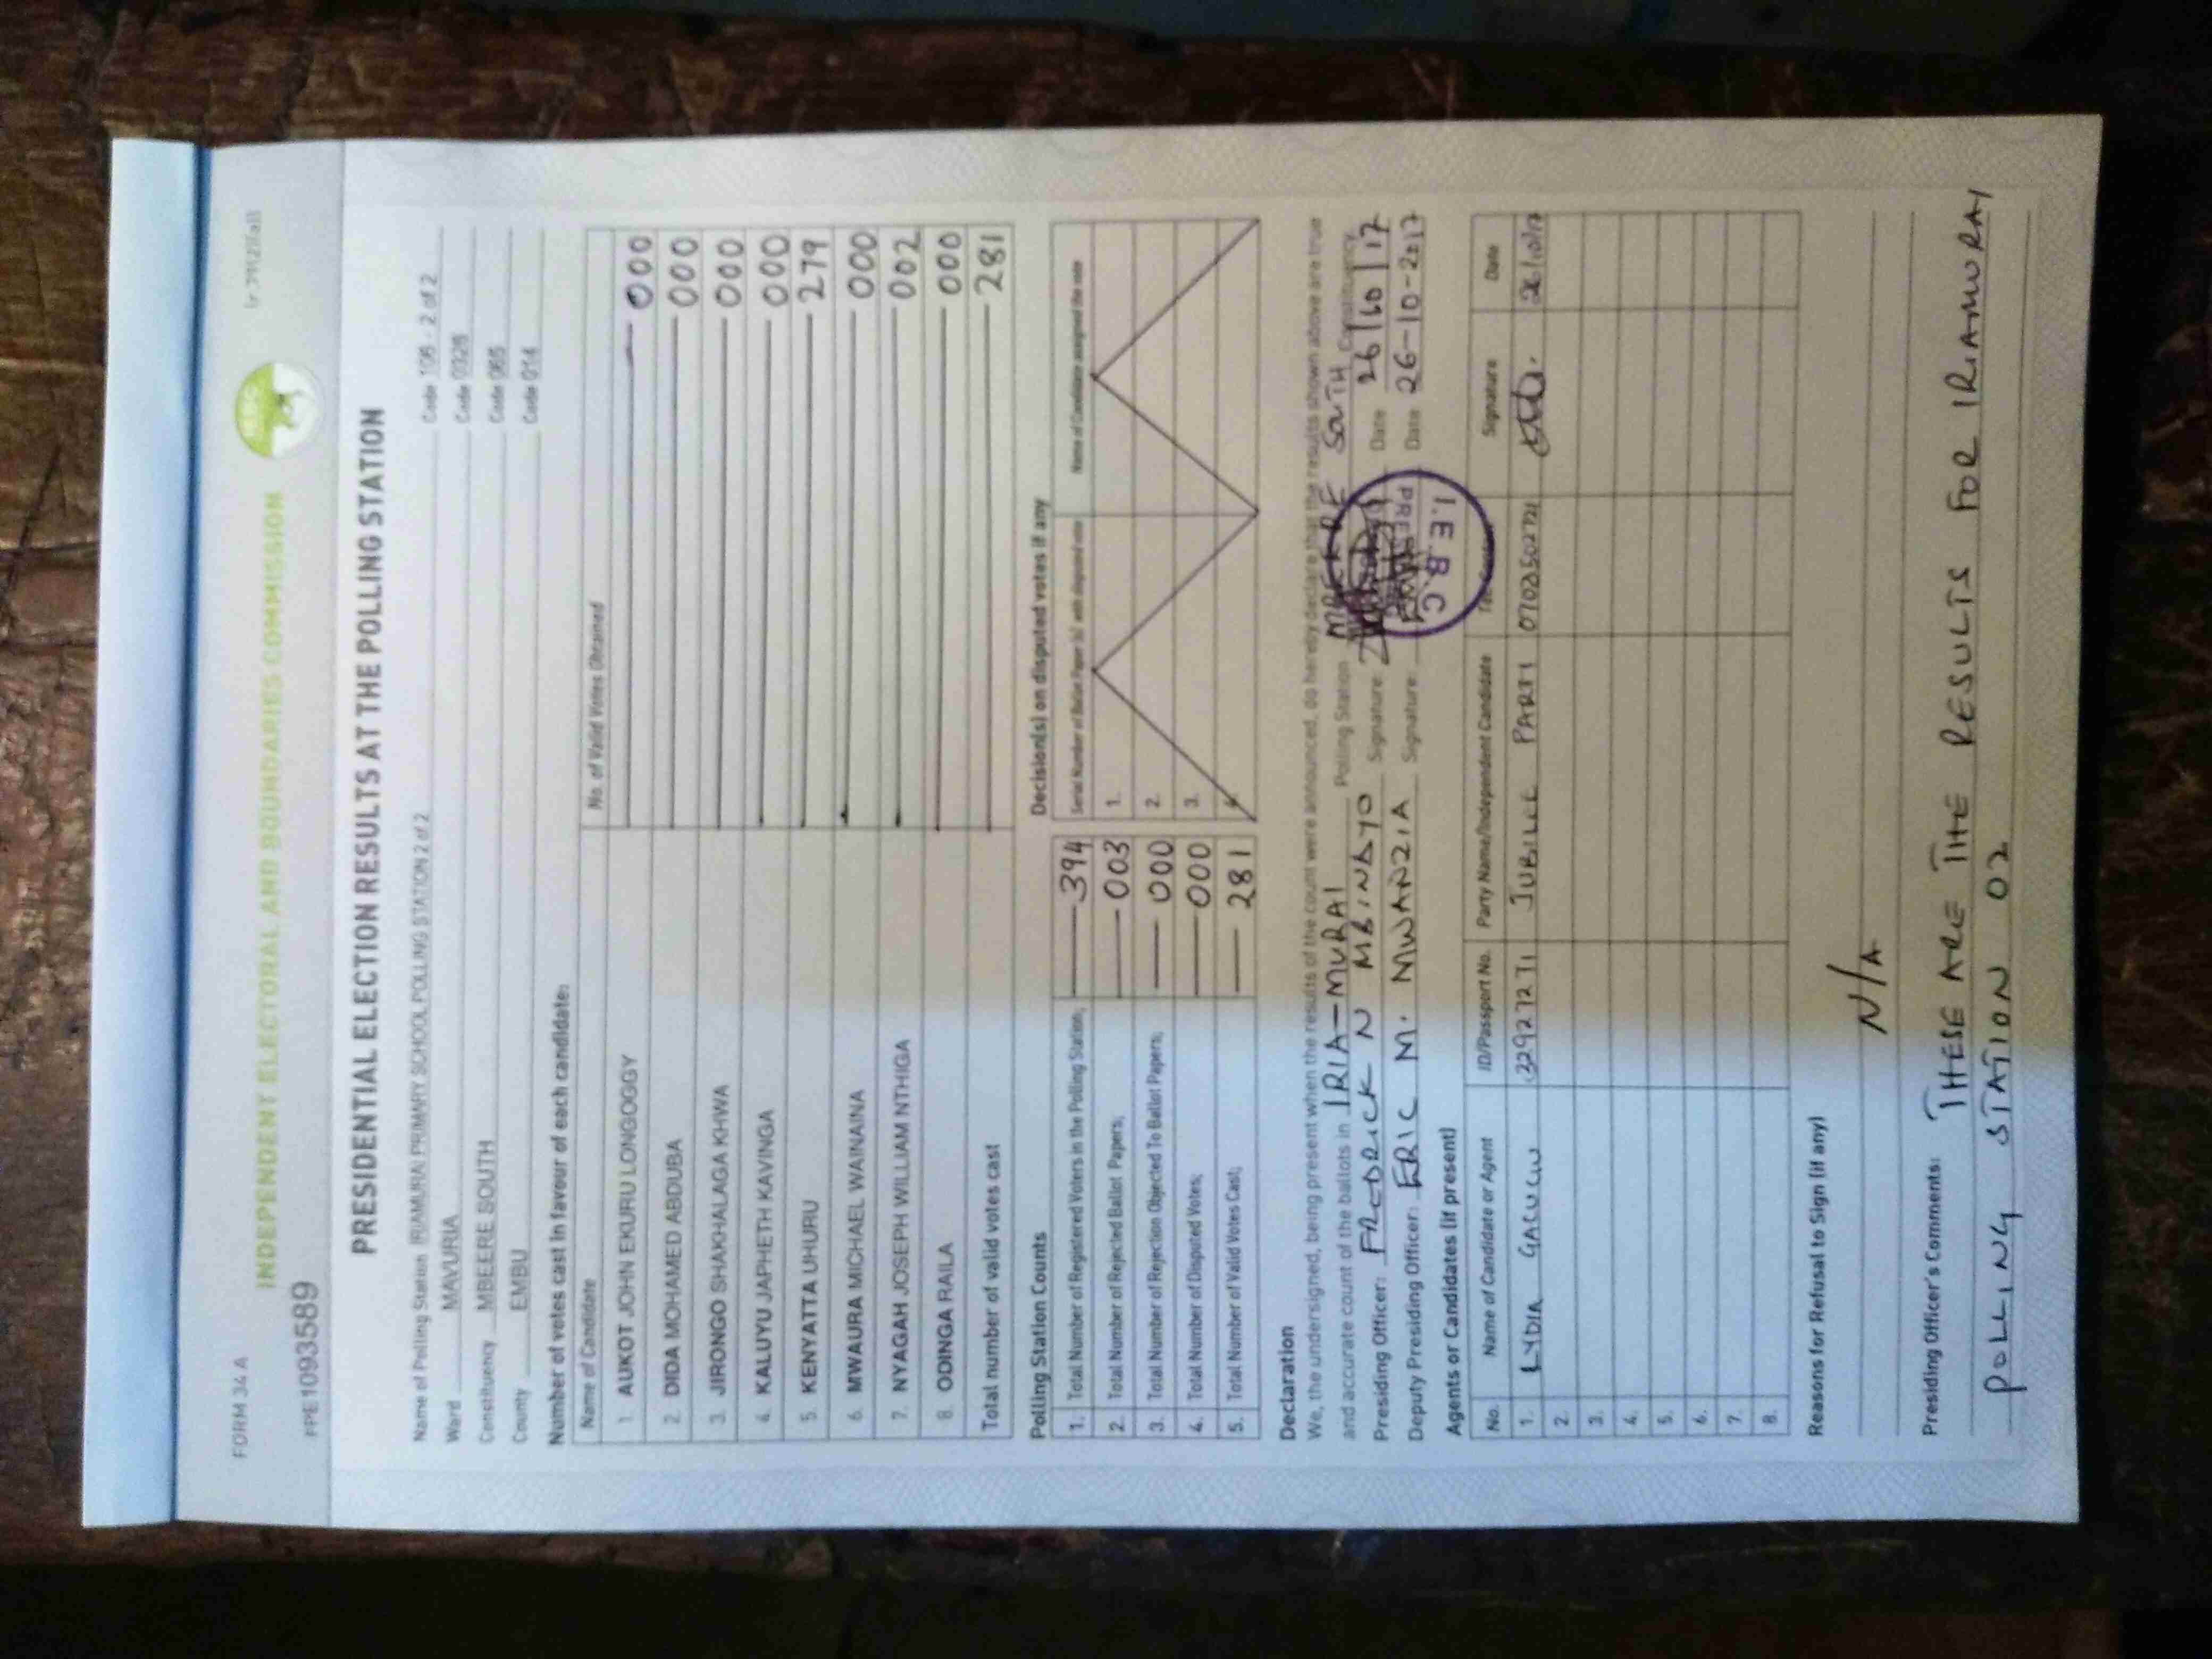 FORM 34 A
INDEPENDENT ELECTORAL AND BOUNDARIES COMMISSION
PPE1093589
PRESIDENTIAL ELECTION RESULTS AT THE POLLING STATION
Name of Polling Station IRIAMURAI PRIMARY SCHOOL POLLING STATION 2 of 2 Code 106 - 2 of 2
Ward MAVURIA Code 0325
Constituency MBEERE SOUTH Code 065
County EMBU Code 014
Number of votes cast in favour of each candidate:
Name of Candidate No. of Valid Votes Obtained
1. AUKOT JOHN EKURU LONGOGGY 000
2. DIDA MOHAMED ABDUBA 000
3. JIRONGO SHAKHALAGA KHWA 000
4. KALUYU JAPHETH KAVINGA 000
5. KENYATTA UHURU 279
6. MWAURA MICHAEL WAINAINA 000
7. NYAGAH JOSEPH WILLIAM NTHIGA 002
8. ODINGA RAILA 000
Total number of valid votes cast 281
Polling Station Counts
1. Total Number of Registered Voters in the Polling Station; 394
2. Total Number of Rejected Ballot Papers; 003
3. Total Number of Rejection Objected To Ballot Papers; 000
4. Total Number of Disputed Votes; 000
5. Total Number of Valid Votes Cast; 281
Decision(s) on disputed votes if any
Serial Number of Ballot Paper (s) with disputed vote Name of Candidate assigned the vote
1.
2.
3.
4.
Declaration
We, the undersigned, being present when the results of the count were announced, do hereby declare that the results shown above are true
and accurate count of the ballots in IRIA-MURAI Polling Station MBEERE SOUTH Constituency
Presiding Officer: FREDRICK N MBINDYO Signature Date 26/10/17
Deputy Presiding Officer: ERIC M. MWANZIA Signature: Date 26-10-2017
I.E.B.C
Agents or Candidates (if present)
No. Name of Candidate or Agent ID/Passport No. Party Name/Independent Candidate Signature Date
1. LYDIA GACUCU 32927271 JUBILEE PARTY 0702502721 26/10/17
2.
3.
4.
5.
6.
7.
8.
Reasons for Refusal to Sign (if any)
N/A
Presiding Officer's Comments: THESE ARE THE RESULTS FOR IRIAMURAI
POLLING STATION 02